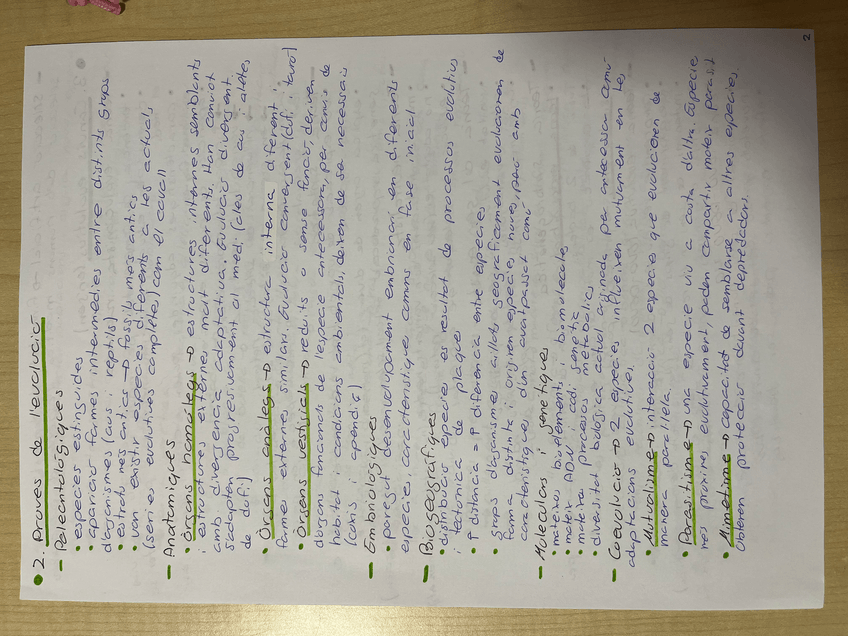 2
2. Proves de l'evolució
- Paleontològiques
• espècies extingides
• aparició formes intermèdies entre distints grups
d'organismes (aus i rèptils)
• estratu més antics → fòssils més antics
• van existir espècies diferents a les actuals
(series evolutives completes) com el cavall
- Anatòmiques
• Òrgans homòlegs → estructures internes semblants
i estructures externes molt diferents. Han canviat
amb divergència adaptativa. Evolució divergent
s'adapten progressivament al medi. (ales de au i aletes
de dofí)
• Òrgans anàlegs → estructura interna diferent i
formes externes similars. Evolució convergent (dofí i tauró)
• Òrgans vestigials → reduïts o sense funció, deriven
d'òrgans funcionals de l'espècie antecessora, per canvis de
hàbitat i condicions ambientals, deixen de ser necessaris
(còxis i apèndix)
- Embriològiques
• paregut desenvolupament embrionari en diferents
espècies, característiques comuns en fase inicial
- Biogeogràfiques
• distribució espècies és resultat de processos evolutius
i tectònica de plaques
• ↑ distància = ↑ diferència entre espècies
• grups d'organismes aïllats geogràficament evolucionen de
forma distinta i originen espècies noves, però amb
característiques d'un avantpassat comú
- Moleculars i genètiques
• mateixos bioelements i biomolècules
• mateix ADN i codi genètic
• mateixos processos metabòlics
• diversitat biològica actual originada per antecessor comú
- Coevolució → 2 espècies influeixen mutuament en les
adaptacions evolutives.
• Mutualisme → interacció 2 espècies que evolucionen de
manera paral·lela.
• Parasitisme → una espècie viu a costa d'altra. Espècie
més pròximes evolutivament, poden compartir mateix paràsit
• Mimetisme → capacitat de semblarse a altres espècies.
Obtenen protecció davant depredadors.